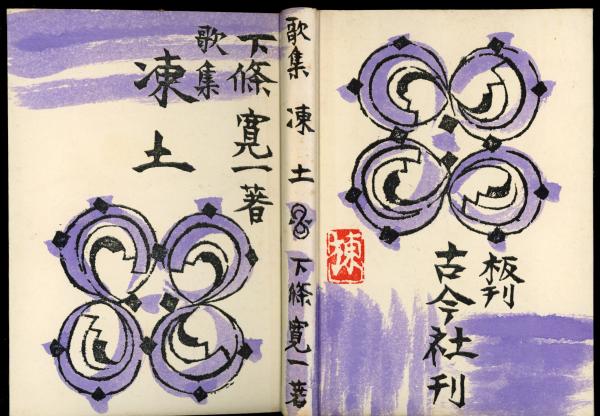 下條寛一著
歌集
凍土
歌集 凍土 下條寛一著
板刊
古今社刊
棟